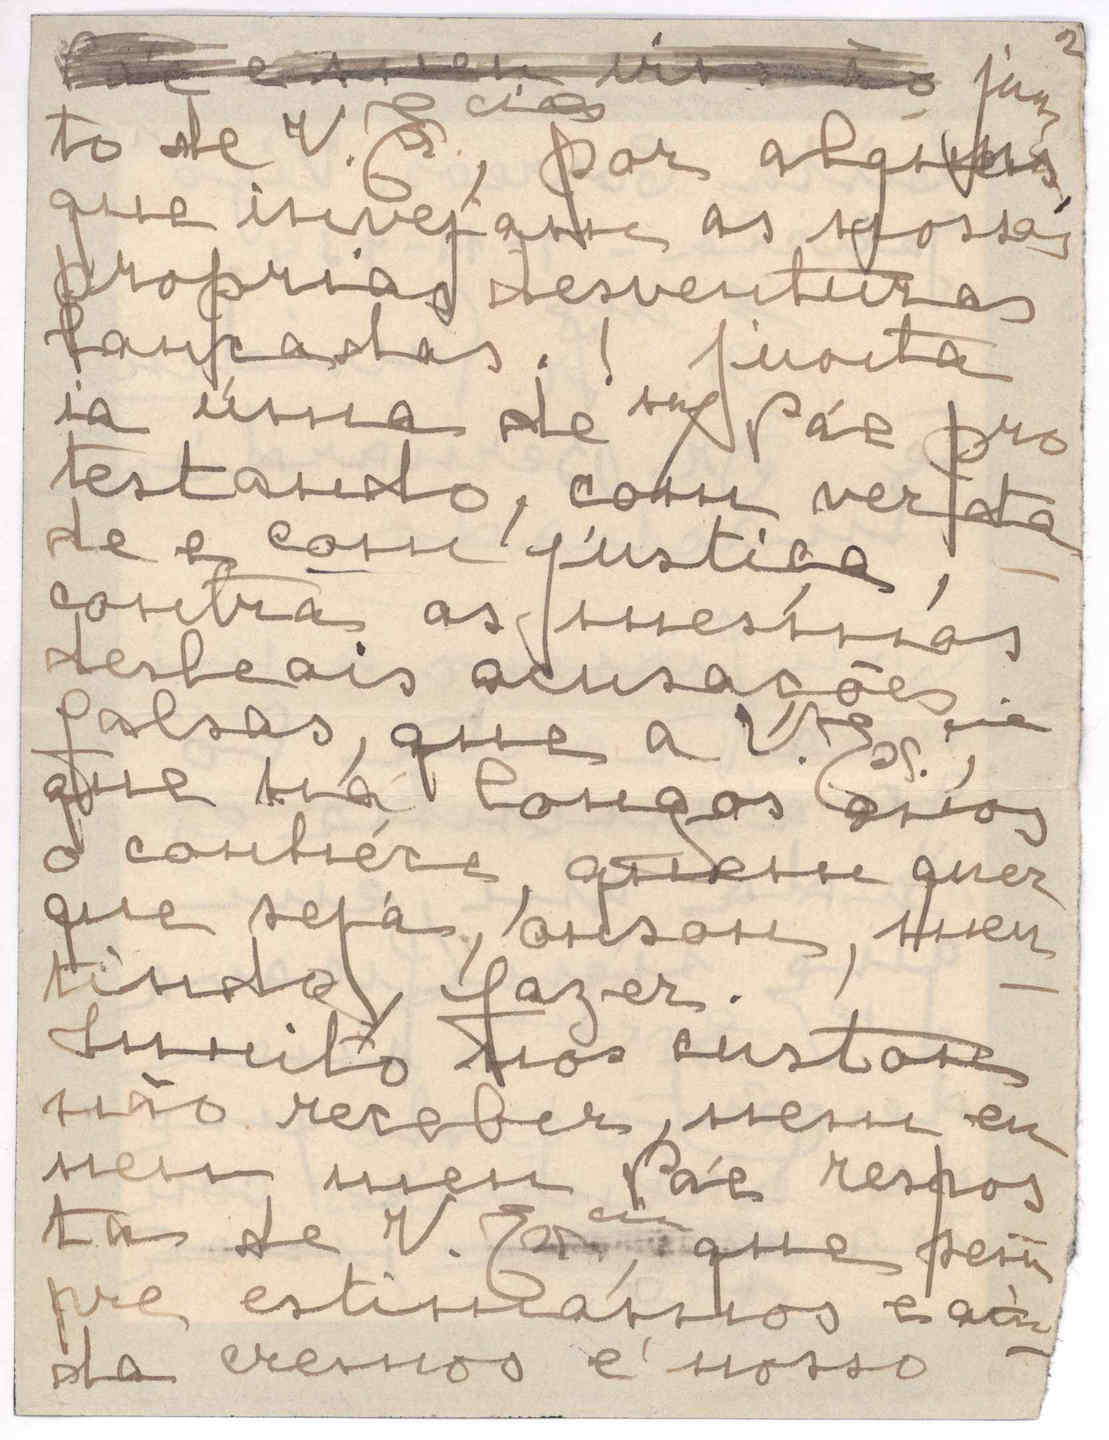 2
Páe e meu irmão jun
to de V. Ex.cias, por alguns
que invejam as nossas
proprias desventuras
lançadas.! Junta
ia uma de meu Páe pro
testando, com verda
de e com justiça,
contra as mesmas
desleais acusações
falsas, que a V. Ex.cia,
que há longos anos
o conhéce, quem quer
que seja, ousou, men
tindo, fazer.
Muito nos custou
não receber, nem eu
nem meu Páe respos
ta de V. Ex.cia, que sem
pre estimámos e ain
da cremos é nosso